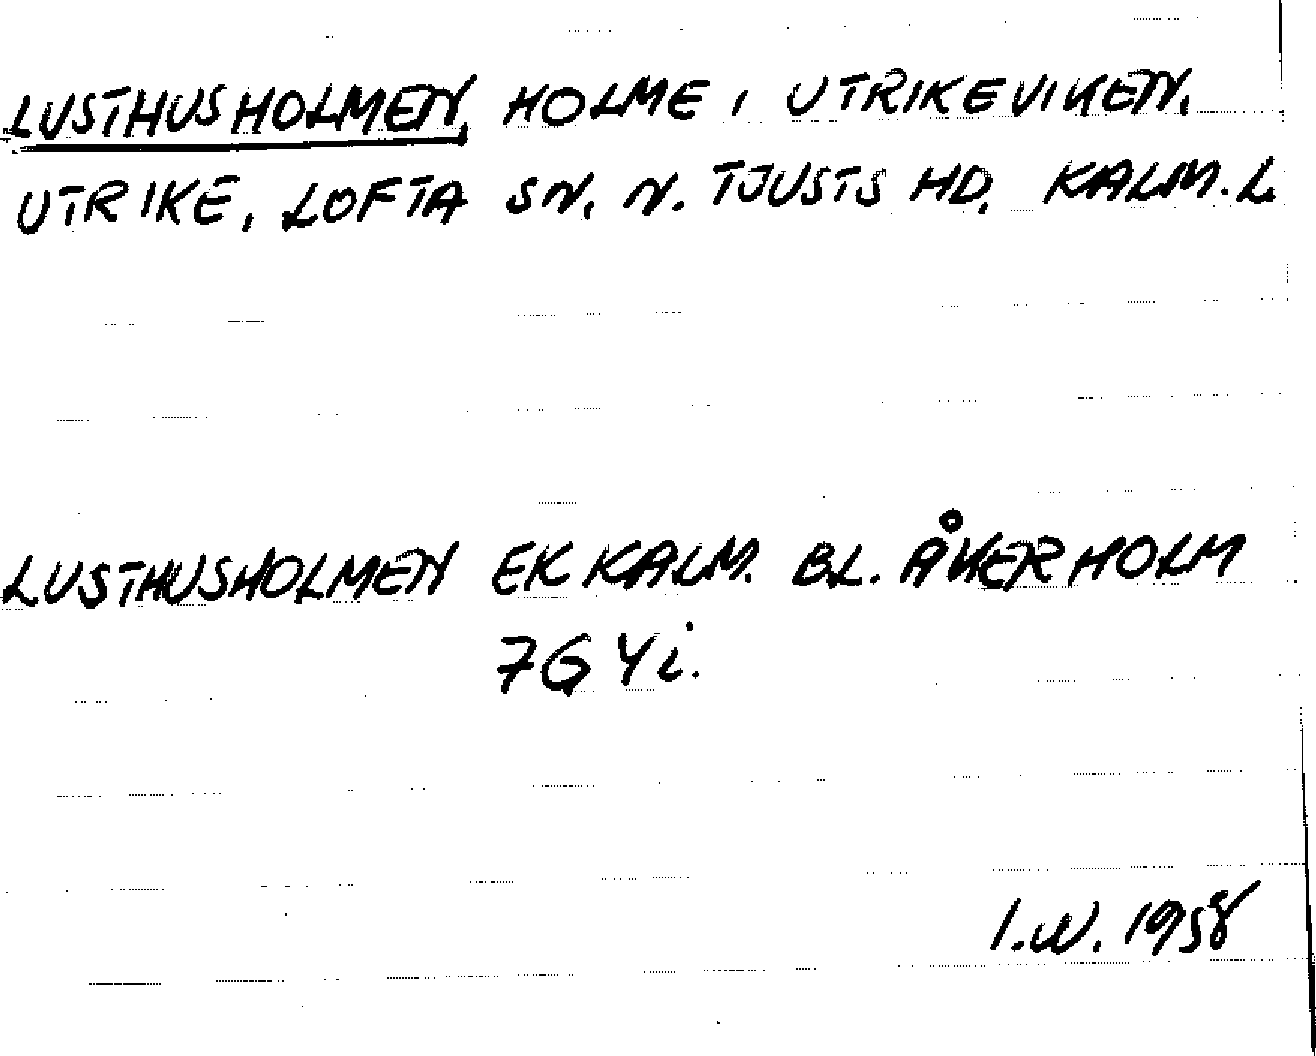 LUSTHUSHOLMEN, HOLME I UTRIKEVIKEN.
UTRIKE, LOFTA SN, N. TJUSTS HD, KALM. L.
LUSTHUSHOLMEN EK KALM. BL. ÅKERHOLM
7G 4i.
I.W. 1958